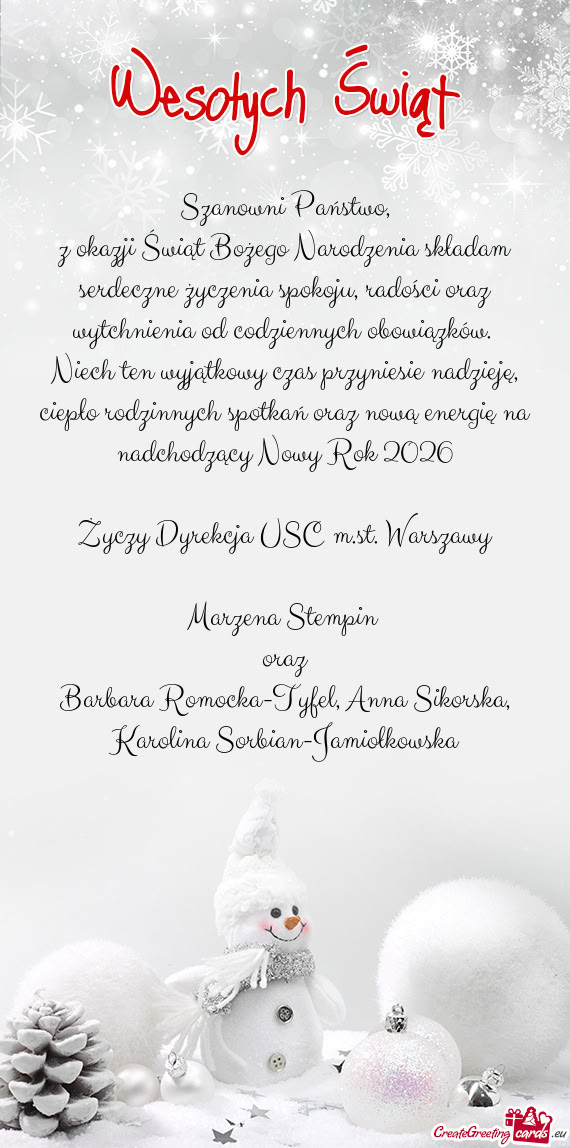 Wesołych Świąt
Szanowni Państwo,
z okazji Świąt Bożego Narodzenia składam
serdeczne życzenia spokoju, radości oraz
wytchnienia od codziennych obowiązków.
Niech ten wyjątkowy czas przyniesie nadzieję,
ciepło rodzinnych spotkań oraz nową energię na
nadchodzący Nowy Rok 2026
Życzy Dyrekcja USC m.st. Warszawy
Marzena Stempin
oraz
Barbara Romocka-Tyfel, Anna Sikorska,
Karolina Sorbian-Jamiołkowska
CreateGreetingcards.eu